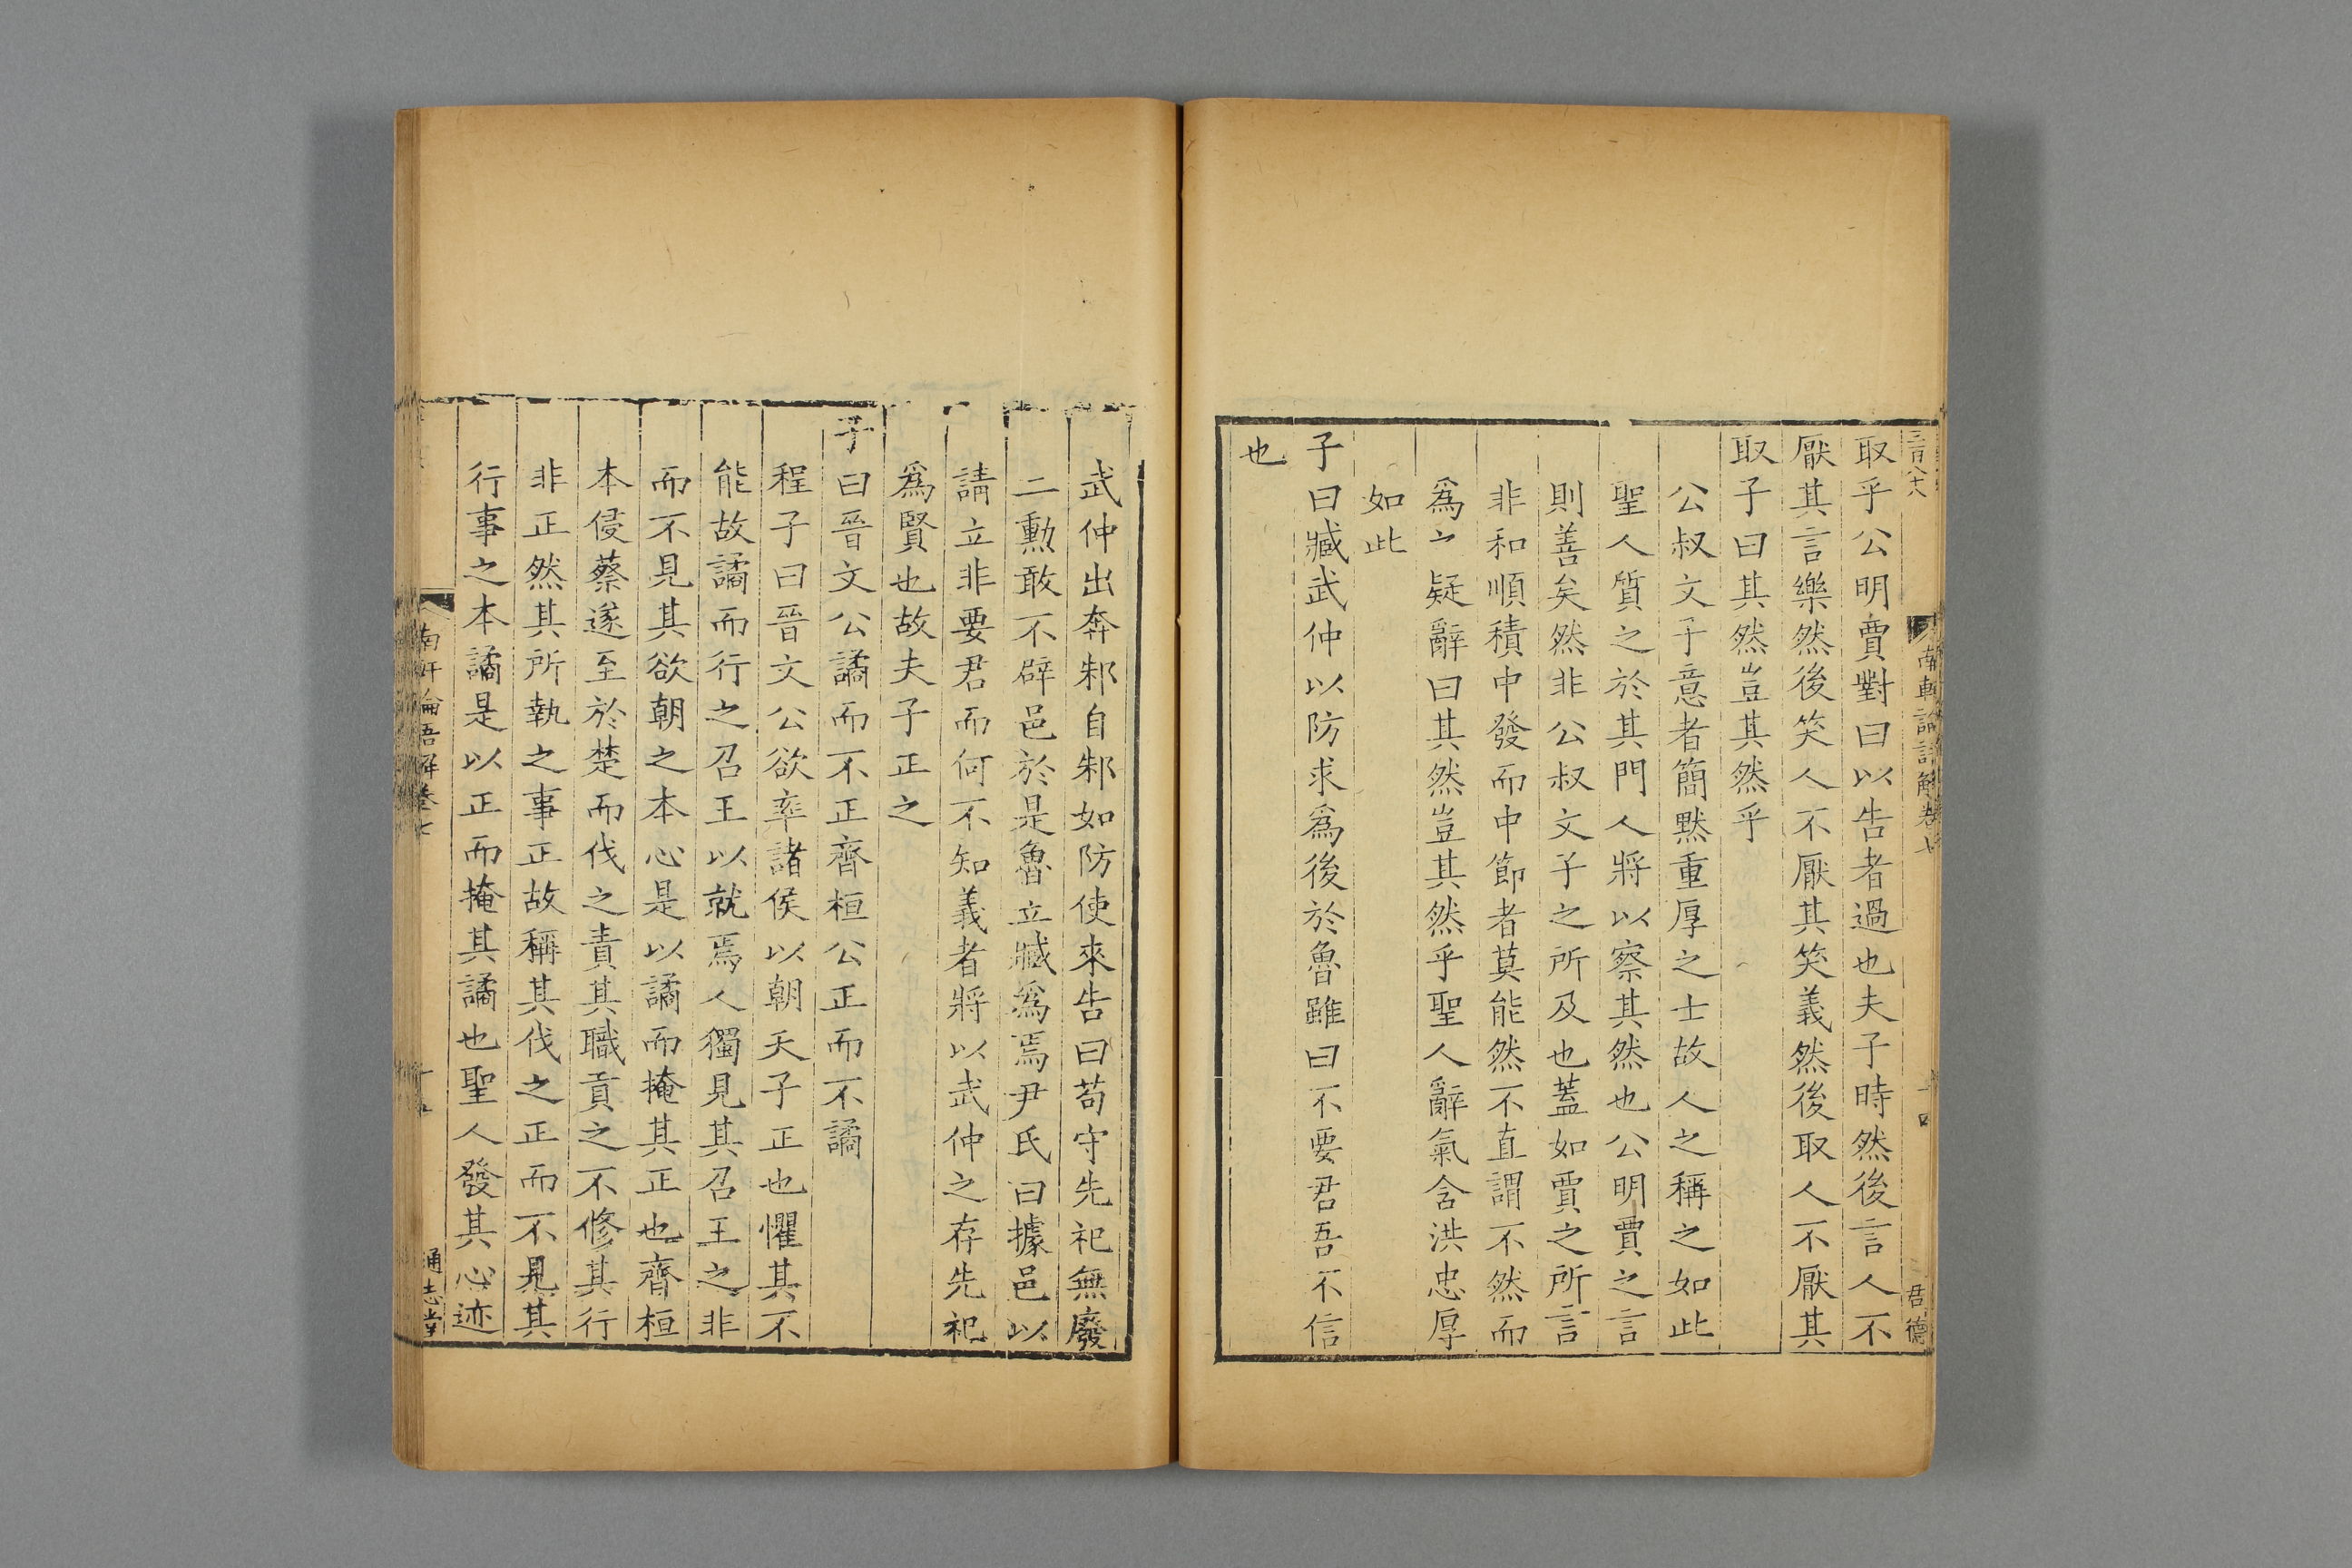 取乎公明賈對曰以告者過也夫子時然後言人不
厭其言樂然後笑人不厭其笑義然後取人不厭其
取子曰其然豈其然乎
公叔文子意者簡默重厚之士故人之稱之如此
聖人質之於其門人將以察其然也公明賈之言
則善矣然非公叔文子之所及也蓋如賈之所言
非和順積中發而中節者莫能然不直謂不然而
爲之疑辭曰其然豈其然乎聖人辭氣含洪忠厚
如此
子曰臧武仲以防求爲後於魯雖曰不要君吾不信
也
南軒論語解卷七
君德
武仲出奔邾自邾如防使來告曰苟守先祀無廢
二勲敢不辟邑於是魯立臧爲焉尹氏曰據邑以
請立非要君而何不知義者將以武仲之存先祀
爲賢也故夫子正之
子曰晉文公譎而不正齊桓公正而不譎
程子曰晉文公欲率諸侯以朝天子正也懼其不
能故譎而行之召王以就焉人獨見其召王之非
而不見其欲朝之本心是以譎而掩其正也齊桓
本侵蔡遂至於楚而伐之責其職貢之不修其行
非正然其所執之事正故稱其伐之正而不見其
行事之本譎是以正而掩其譎也聖人發其心迹
南軒論語解卷七
通志堂